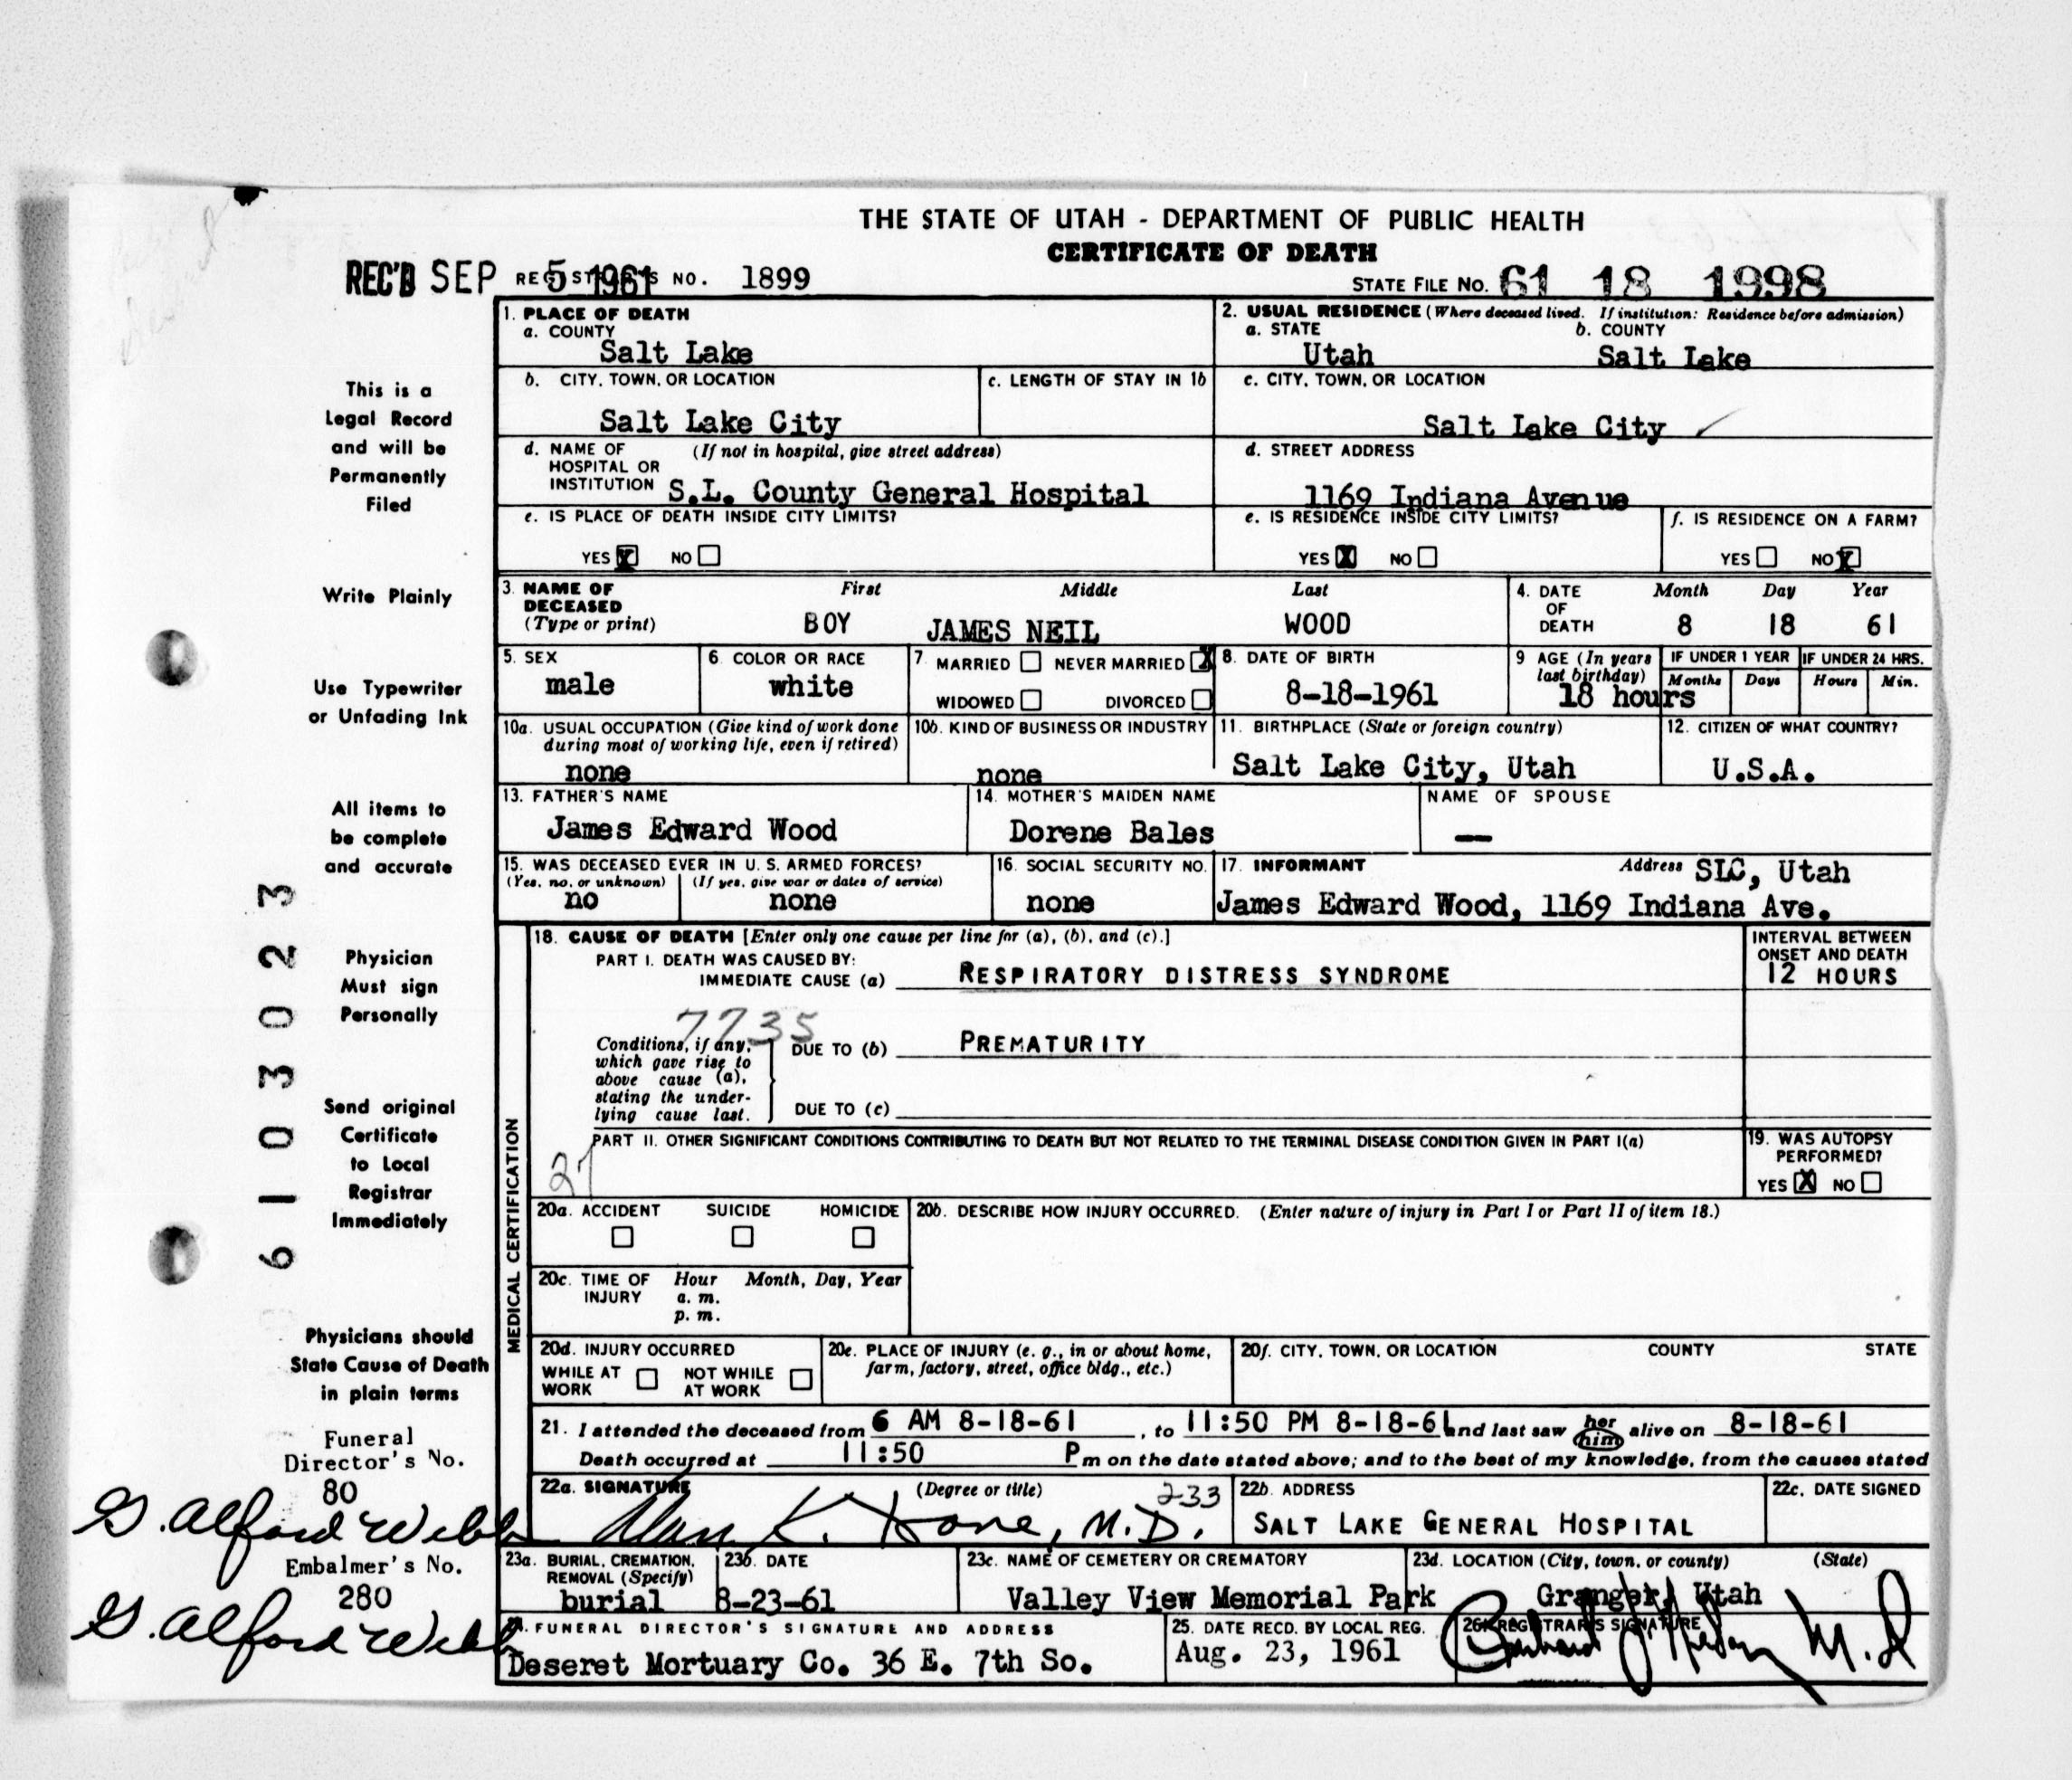 THE STATE OF UTAH - DEPARTMENT OF PUBLIC HEALTH
CERTIFICATE OF DEATH
REC'D SEP 5 1961 REGISTRAR'S NO. 1899
STATE FILE No. 61 18 1998
1. PLACE OF DEATH
a. COUNTY
Salt Lake
2. USUAL RESIDENCE (Where deceased lived. If institution: Residence before admission)
a. STATE b. COUNTY
Utah Salt Lake
b. CITY, TOWN, OR LOCATION
Salt Lake City
c. LENGTH OF STAY IN 1b
c. CITY, TOWN, OR LOCATION
Salt Lake City
d. NAME OF (If not in hospital, give street address)
HOSPITAL OR
INSTITUTION S.L. County General Hospital
d. STREET ADDRESS
1169 Indiana Avenue
e. IS PLACE OF DEATH INSIDE CITY LIMITS?
YES X NO
e. IS RESIDENCE INSIDE CITY LIMITS?
YES X NO
f. IS RESIDENCE ON A FARM?
YES NO X
3. NAME OF DECEASED
(Type or print)
First Middle Last
BOY JAMES NEIL WOOD
4. DATE OF DEATH
Month Day Year
8 18 61
5. SEX
male
6. COLOR OR RACE
white
7. MARRIED NEVER MARRIED X
WIDOWED DIVORCED
8. DATE OF BIRTH
8-18-1961
9 AGE (In years last birthday)
18 hours
IF UNDER 1 YEAR
Months Days
IF UNDER 24 HRS.
Hours Min.
10a. USUAL OCCUPATION (Give kind of work done
during most of working life, even if retired)
none
10b. KIND OF BUSINESS OR INDUSTRY
none
11. BIRTHPLACE (State or foreign country)
Salt Lake City, Utah
12. CITIZEN OF WHAT COUNTRY?
U.S.A.
13. FATHER'S NAME
James Edward Wood
14. MOTHER'S MAIDEN NAME
Dorene Bales
NAME OF SPOUSE
—
15. WAS DECEASED EVER IN U. S. ARMED FORCES?
(Yes, no, or unknown) (If yes, give war or dates of service)
no none
16. SOCIAL SECURITY NO.
none
17. INFORMANT Address SLC, Utah
James Edward Wood, 1169 Indiana Ave.
MEDICAL CERTIFICATION
18. CAUSE OF DEATH [Enter only one cause per line for (a), (b), and (c).]
PART I. DEATH WAS CAUSED BY:
IMMEDIATE CAUSE (a) RESPIRATORY DISTRESS SYNDROME
INTERVAL BETWEEN
ONSET AND DEATH
12 HOURS
7735
Conditions, if any,
which gave rise to
above cause (a),
stating the under-
lying cause last.
DUE TO (b) PREMATURITY
DUE TO (c)
PART II. OTHER SIGNIFICANT CONDITIONS CONTRIBUTING TO DEATH BUT NOT RELATED TO THE TERMINAL DISEASE CONDITION GIVEN IN PART I(a)
19. WAS AUTOPSY
PERFORMED?
YES X NO
20a. ACCIDENT SUICIDE HOMICIDE
20b. DESCRIBE HOW INJURY OCCURRED. (Enter nature of injury in Part I or Part II of item 18.)
20c. TIME OF INJURY
Hour Month, Day, Year
a. m.
p. m.
20d. INJURY OCCURRED
WHILE AT WORK NOT WHILE AT WORK
20e. PLACE OF INJURY (e. g., in or about home,
farm, factory, street, office bldg., etc.)
20f. CITY, TOWN, OR LOCATION COUNTY STATE
21. I attended the deceased from 6 AM 8-18-61, to 11:50 PM 8-18-61 and last saw her him alive on 8-18-61
Death occurred at 11:50 P m on the date stated above; and to the best of my knowledge, from the causes stated
22a. SIGNATURE (Degree or title) 233
K. M.D.
22b. ADDRESS
SALT LAKE GENERAL HOSPITAL
22c. DATE SIGNED
23a. BURIAL, CREMATION,
REMOVAL (Specify)
burial
23b. DATE
8-23-61
23c. NAME OF CEMETERY OR CREMATORY
Valley View Memorial Park
23d. LOCATION (City, town, or county) (State)
Granger, Utah
FUNERAL DIRECTOR'S SIGNATURE AND ADDRESS
Deseret Mortuary Co. 36 E. 7th So.
25. DATE RECD. BY LOCAL REG.
Aug. 23, 1961
26. REGISTRAR'S SIGNATURE
M.D
This is a
Legal Record
and will be
Permanently
Filed
Write Plainly
Use Typewriter
or Unfading Ink
All items to
be complete
and accurate
Physician
Must sign
Personally
Send original
Certificate
to Local
Registrar
Immediately
Physicians should
State Cause of Death
in plain terms
Funeral
Director's No.
80
G. Alford Webb
Embalmer's No.
280
G. Alford Webb
6103023